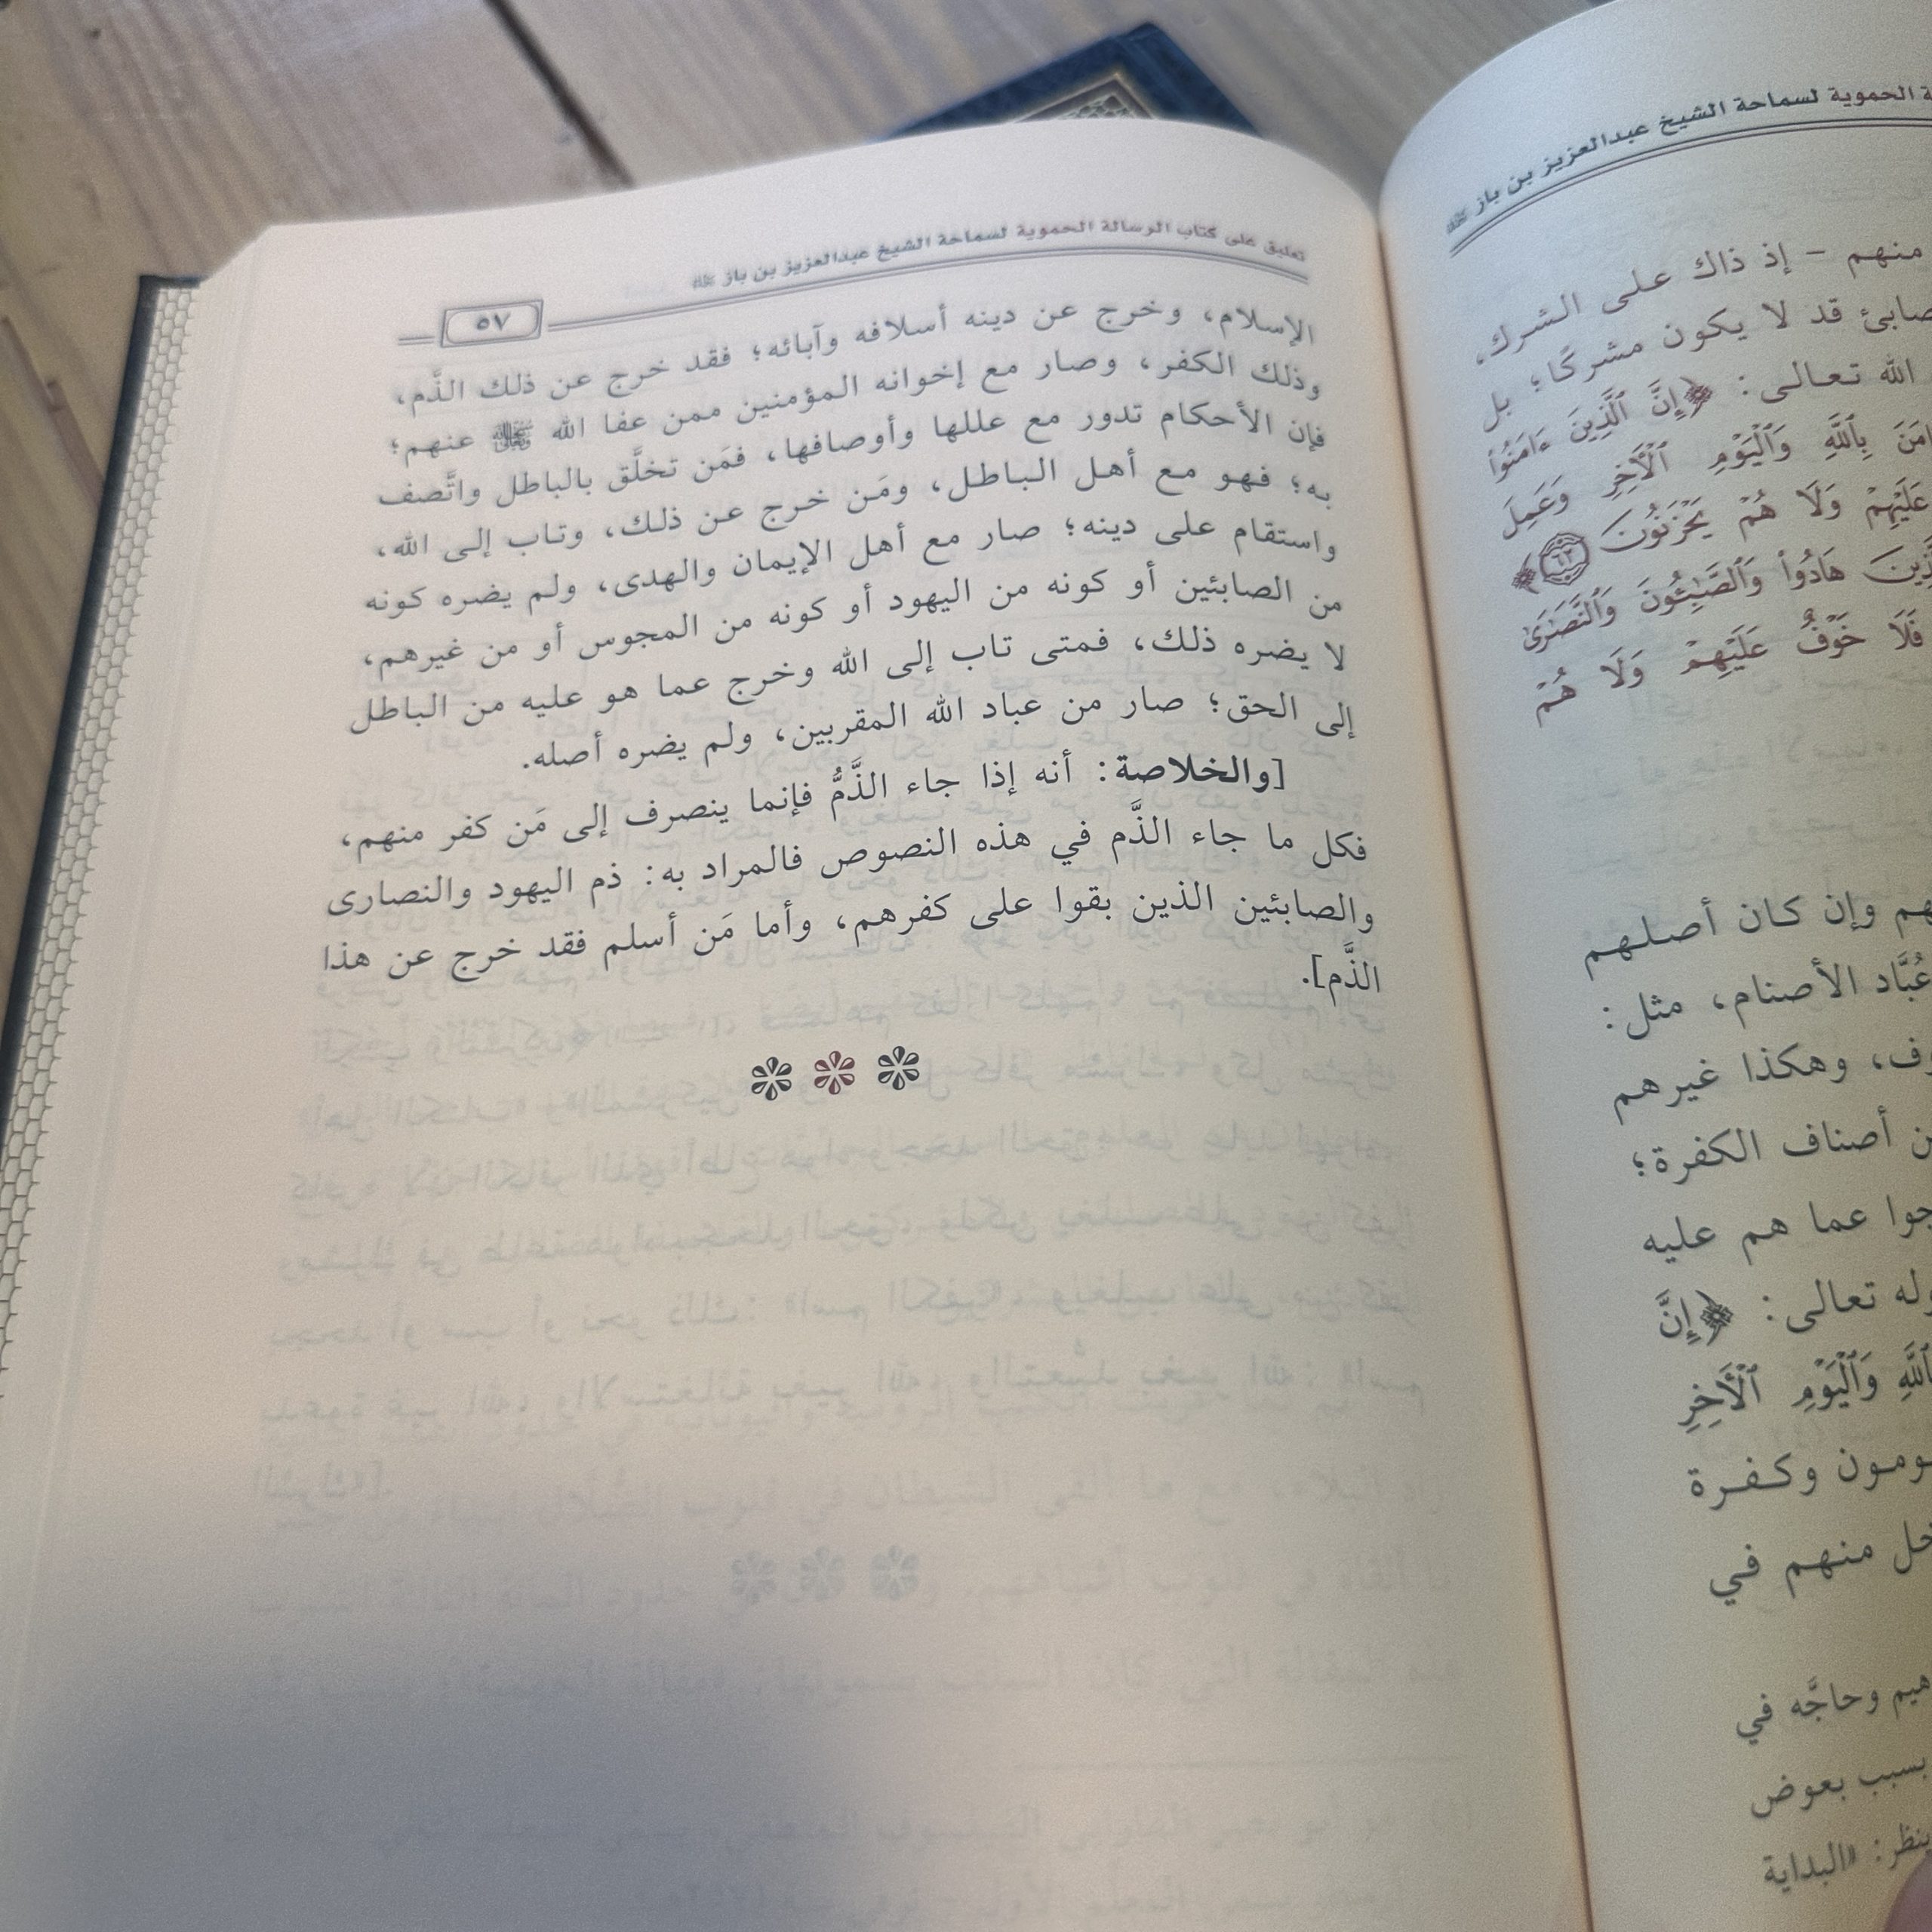 ة الحموية لسماحة الشيخ عبدالعزيز بن باز رحمه الله
منهم - إذ ذاك على الشرك،
صابئ قد لا يكون مشركًا؛ بل
الله تعالى: ﴿إِنَّ ٱلَّذِينَ ءَامَنُوا۟
ءَامَنَ بِٱللَّهِ وَٱلْيَوْمِ ٱلْأَخِرِ وَعَمِلَ
عَلَيْهِمْ وَلَا هُمْ يَحْزَنُونَ ٦٢﴾
لَّذِينَ هَادُوا۟ وَٱلصَّٰبِـُٔونَ وَٱلنَّصَٰرَىٰ
فَلَا خَوْفٌ عَلَيْهِمْ وَلَا هُمْ
هم وإن كان أصلهم
عُبَّاد الأصنام، مثل:
وف، وهكذا غيرهم
ن أصناف الكفرة؛
جوا عما هم عليه
وله تعالى: ﴿إِنَّ
بِٱللَّهِ وَٱلْيَوْمِ ٱلْأَخِرِ
ومون وكفرة
خل منهم في
هيم وحاجَّه في
بسبب بعوض
ينظر: «البداية
تعليق على كتاب الرسالة الحموية لسماحة الشيخ عبدالعزيز بن باز رحمه الله
٥٧
الإسلام، وخرج عن دينه أسلافه وآبائه؛ فقد خرج عن ذلك الذَّم،
وذلك الكفر، وصار مع إخوانه المؤمنين ممن عفا الله ﷾ عنهم؛
فإن الأحكام تدور مع عللها وأوصافها، فمَن تخلَّق بالباطل واتَّصف
به؛ فهو مع أهل الباطل، ومَن خرج عن ذلك، وتاب إلى الله،
واستقام على دينه؛ صار مع أهل الإيمان والهدى، ولم يضره كونه
من الصابئين أو كونه من اليهود أو كونه من المجوس أو من غيرهم،
لا يضره ذلك، فمتى تاب إلى الله وخرج عما هو عليه من الباطل
إلى الحق؛ صار من عباد الله المقربين، ولم يضره أصله.
[والخلاصة: أنه إذا جاء الذَّمُّ فإنما ينصرف إلى مَن كفر منهم،
فكل ما جاء الذَّم في هذه النصوص فالمراد به: ذم اليهود والنصارى
والصابئين الذين بقوا على كفرهم، وأما مَن أسلم فقد خرج عن هذا
الذَّم].